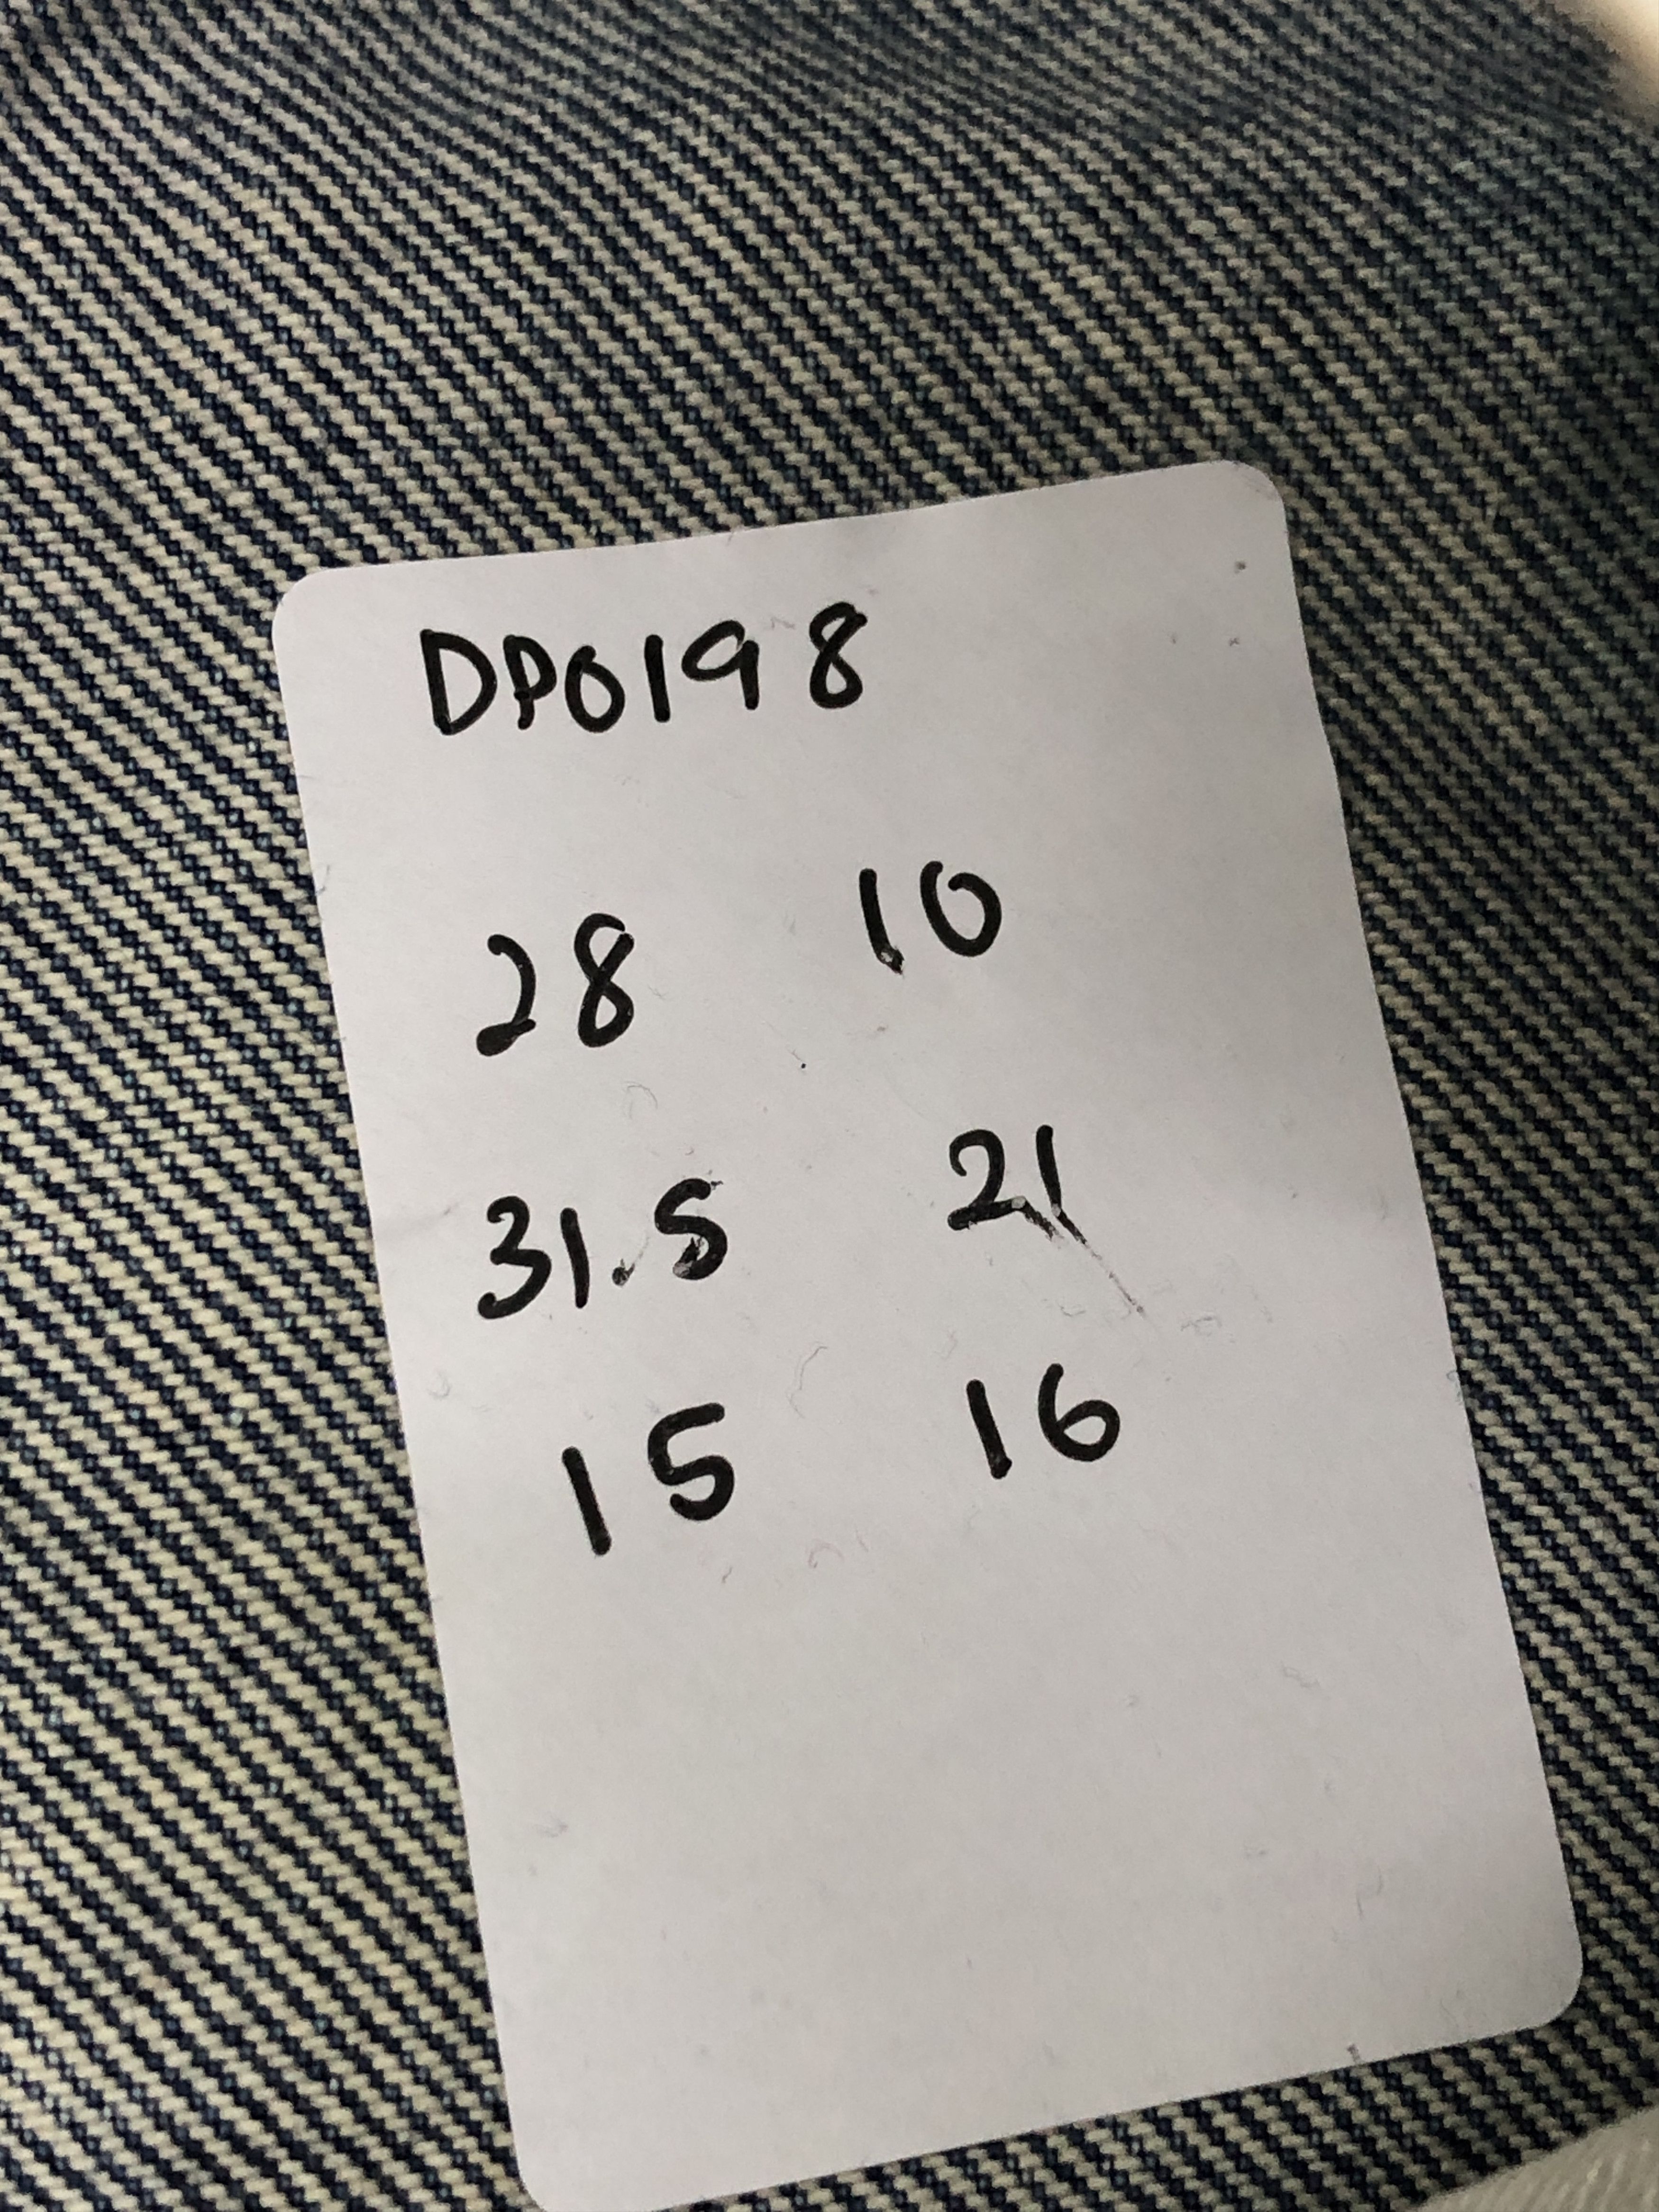 DP0198
28 10
31.5 21
15 16